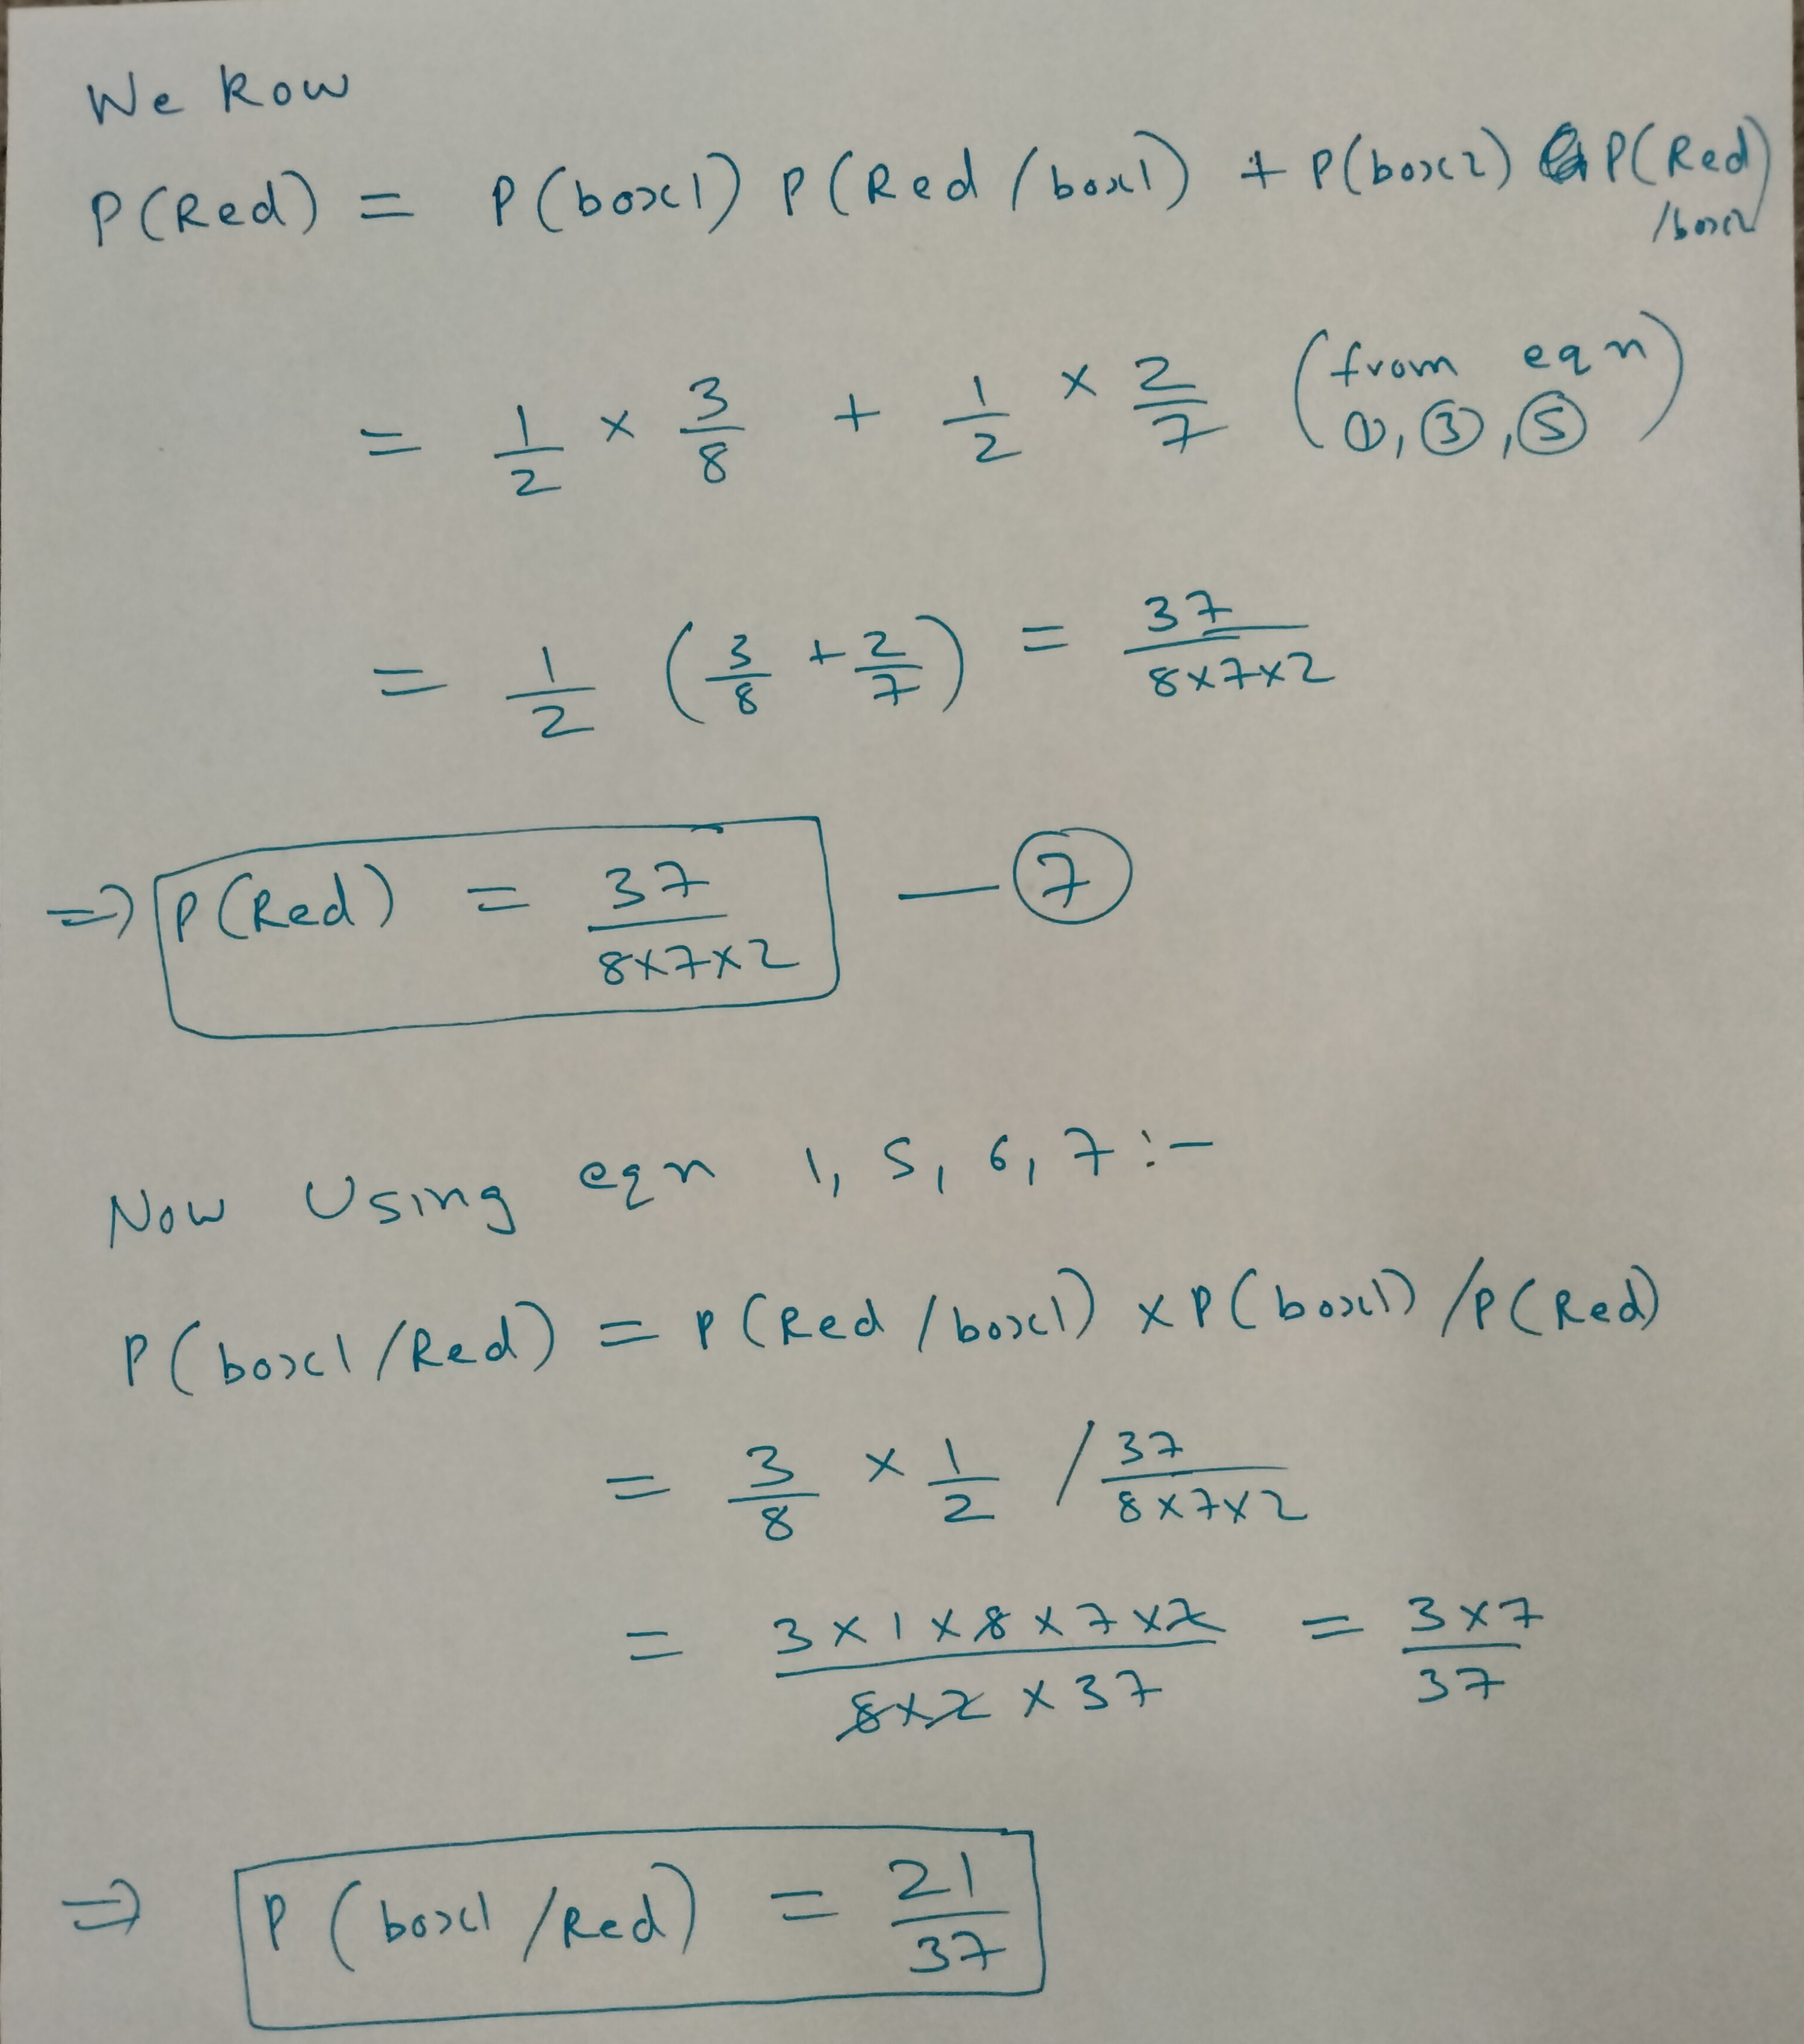 We know
P(Red) = P(box1) P(Red/box1) + P(box2) P(Red/box2)
= 1/2 × 3/8 + 1/2 × 2/7 (from eqn ①, ③, ⑤)
= 1/2 (3/8 + 2/7) = 37/8×7×2
⇒ P(Red) = 37/8×7×2 — ⑦
Now Using eqn 1, 5, 6, 7 :-
P(box1/Red) = P(Red/box1) × P(box1) / P(Red)
= 3/8 × 1/2 / 37/8×7×2
= 3×1×8×7×2/8×2×37 = 3×7/37
⇒ P(box1/Red) = 21/37